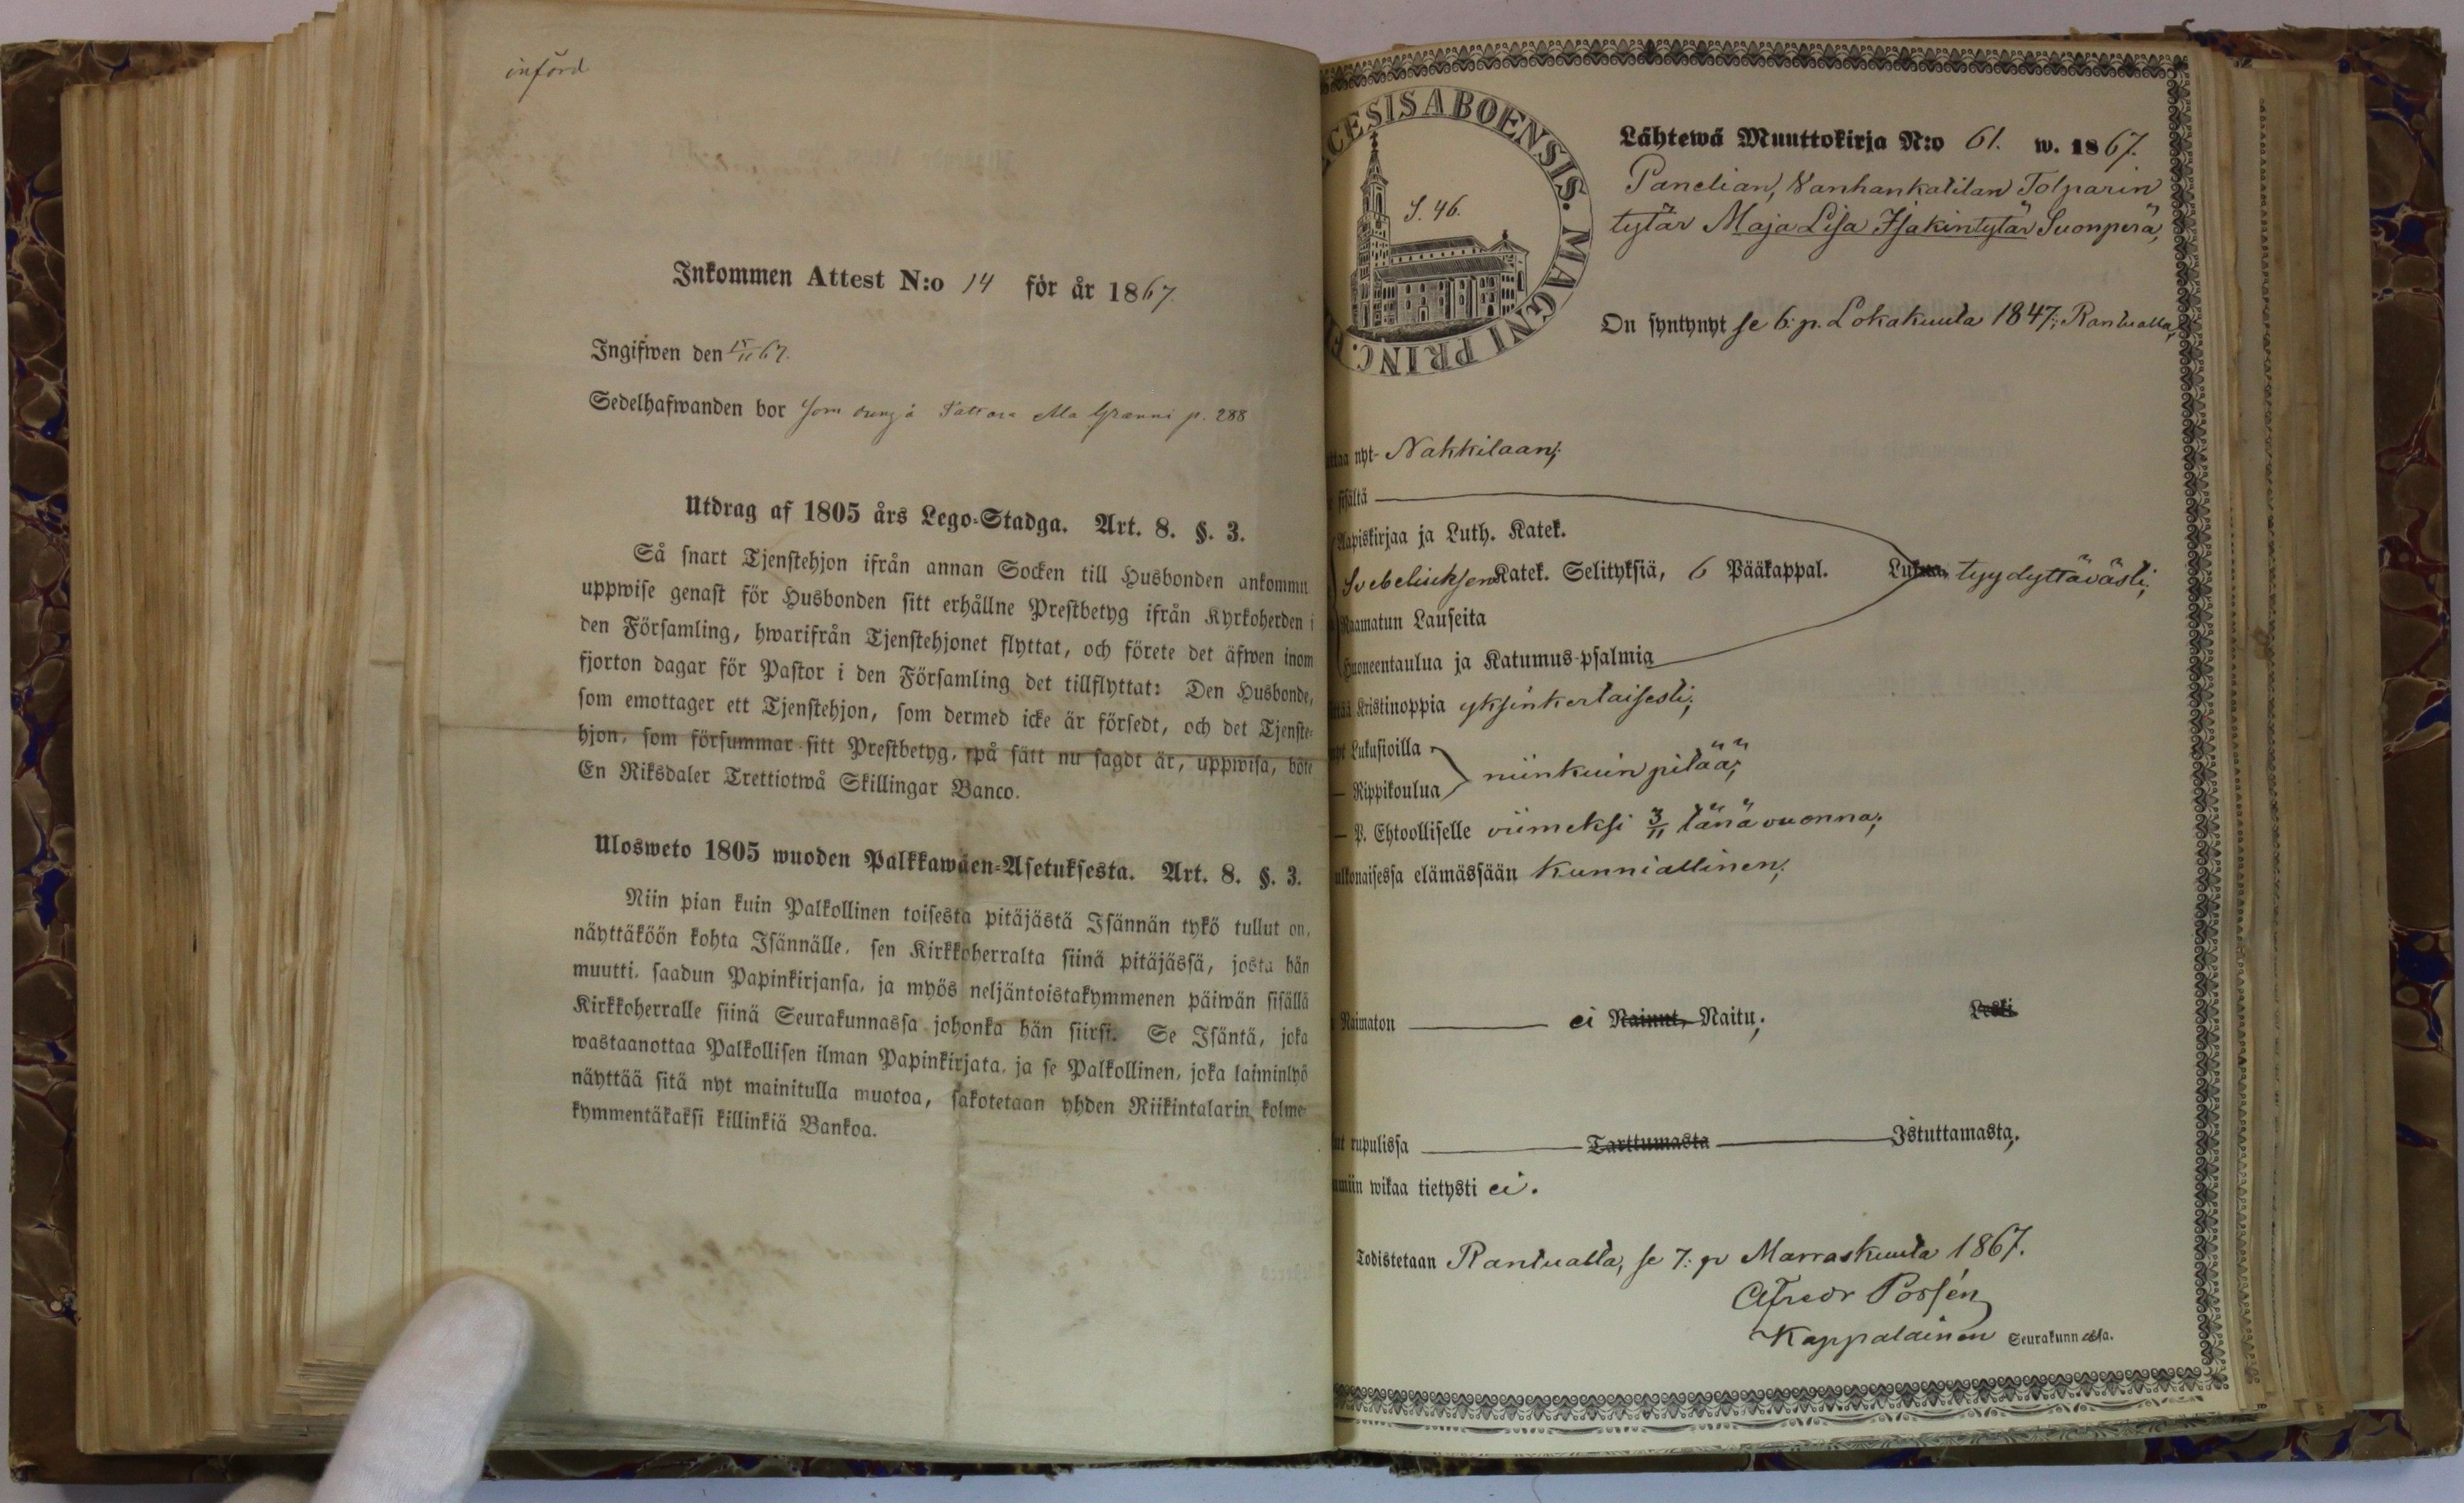 införd
Inkommen Attest N:o 14 för år 1867.
Ingifwen den 15/11 67.
Sedelhafwanden bor Som p. 288
Utdrag af 1805 års Lego-Stadga. Art. 8. §. 3.
Så snart Tjenstehjon ifrån annan Socken till Husbonden ankommit
uppwise genast för Husbonden sitt erhållne Prestbetyg ifrån Kyrkoherden i
den Församling, hwarifrån Tjenstehjonet flyttat, och förete det äfwen inom
fjorton dagar för Pastor i den Församling det tillflyttat: Den Husbonde,
som emottager ett Tjenstehjon, som dermed icke är försedt, och det Tjenste-
hjon, som försummar sitt Prestbetyg, på sätt nu sagdt är, uppwisa, böte
En Riksdaler Trettiotwå Skillingar Banco.
Ulosweto 1805 wuoden Palkkawäen-Asetuksesta. Art. 8. §. 3.
Niin pian kuin Palkollinen toisesta pitäjästä Isännän tykö tullut on,
näyttäköön kohta Isännälle, sen Kirkkoherralta siinä pitäjässä, josta hän
muutti, saadun Papinkirjansa, ja myös neljäntoistakymmenen päiwän sisällä
Kirkkoherralle siinä Seurakunnassa johonka hän siirsi. Se Isäntä, joka
wastaanottaa Palkollisen ilman Papinkirjata, ja se Palkollinen, joka laiminlyö
näyttää sitä nyt mainitulla muotoa, sakotetaan yhden Riikintalarin kolme-
kymmentäkaksi killinkiä Bankoa.
CESIS ABOENSIS. MAGNI PRINC. F
S. 46.
Lähtewä Muuttokirja N:o 61. w. 1867.
Panelian, Vanhankalilan Tolparin
tytär Maja Lisa Isakintytär Suonperä,
On syntynyt se 6: p. Lokakuuta 1847; Rantualla,
ttaa nyt Nakkilaan;
sisältä
Aapiskirjaa ja Luth. Katek.
Svebeliuksen Katek. Selityksiä, 6 Pääkappal. Lukua, tyydyttävästi;
Raamatun Lauseita
Huoneentaulua ja Katumus-psalmia
Kristinoppia yksinkertaisesti;
nyt Lukusioilla
— Rippikoulua niinkuin pitää;
— P. Ehtoolliselle viimeksi 3/11 tänä vuonna;
ulkonaisessa elämässään kunniallinen;
Naimaton ei Nainut, Naitu; Leski.
ut rupulissa Tarttumasta Istuttamasta,
umiin wikaa tietysti ei.
Todistetaan Rantualla, se 7: p Marraskuuta 1867.
Alfredr Porsén
Kappalainen Seurakunnassa.